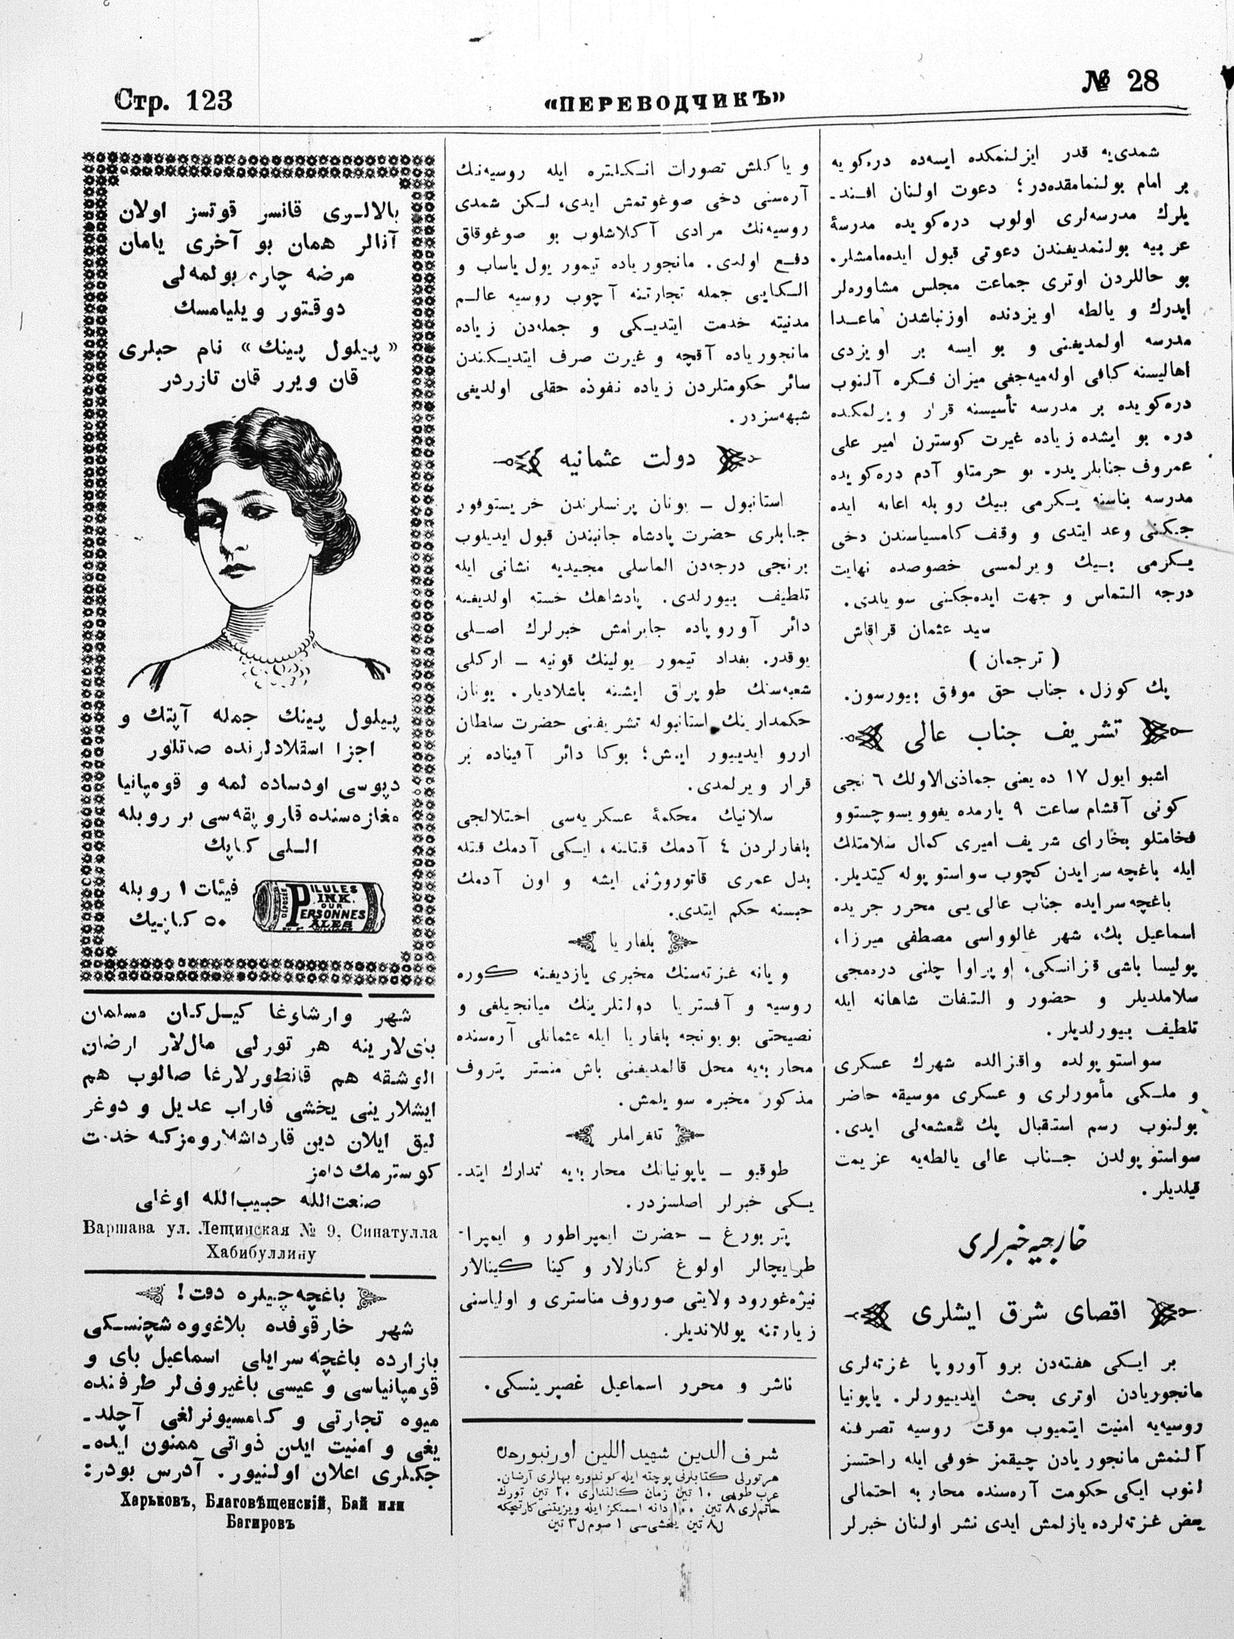 Стр. 123
«ПЕРЕВОДЧИКЪ»
№ 28
شمدی‌یه قدر ایزلنمکده ایسه‌ده دره‌کویه
بر امام بولنمامقده‌در؛ دعوت اولنان افند-
یلرك مدرسه‌لری اولوب دره‌کویده مدرسۀ
عربیه بولنمدیغندن دعوتی قبول ایده‌مامشلر.
بو حاللردن اوتری جماعت مجلس مشاوره‌لر
ایدرك و یالطه اویزدنده اوزنباشدن ماعدا
مدرسه اولمدیغنی و بو ایسه بر اویزدی
اهالیسنه کافی اوله‌میه‌جغی میزان فکره آلنوب
دره‌کویده بر مدرسه تأسیسنه قرار ویرلمکده
در. بو ایشده زیاده غیرت کوسترن امیر علی
عمروف جنابلریدر. بو حرمتلو آدم دره‌کویده
مدرسه بناسنه یکرمی بیك روبله اعانه ایده
جکنی وعد ایتدی و وقف کامسیاسندن دخی
یکرمی بیك ویرلمسی خصوصده نهایت
درجه التماس و جهت ایده‌جکنی سویلدی.
سید عثمان قراقاش
( ترجمان )
پك کوزل، جناب حق موفق بیورسون.
تشریف جناب عالی
اشبو ایول ١٧ ده یعنی جماذی‌الاولك ٦ نجی
کونی آقشام ساعت ٩ یارمده یغوویسوچستوو
فخامتلو بخارای شریف امیری کمال سلامتلك
ایله باغچه سرایدن کچوب سواستوپوله کیتدیلر.
باغچه سرایده جناب عالی‌یی محرر جریده
اسماعیل بك، شهر غالوواسی مصطفی میرزا،
پولیسا باشی قزانسکی، اوپراوا چلنی دره‌مجی
سلاملدیلر و حضور و التفات شاهانه ایله
تلطیف بیورلدیلر.
سواستوپولده واقزالده شهرك عسکری
و ملکی مأمورلری و عسکری موسیقه حاضر
بولنوب رسم استقبال پك شعشعه‌لی ایدی.
سواستوپولدن جناب عالی یالطه‌یه عزیمت
قیلدیلر.
خارجیه خبرلری
اقصای شرق ایشلری
بر ایکی هفته‌دن برو آوروپا غزته‌لری
مانجوریادن اوتری بحث ایدییورلر. یاپونیا
روسیه‌یه امنیت ایتمیوب موقت روسیه تصرفنه
آلنمش مانجوریادن چیقمز خوفی ایله راحتسز
لنوب ایکی حکومت آره‌سنده محاربه احتمالی
بعض غزته‌لرده یازلمش ایدی نشر اولنان خبرلر
و یاکلش تصورات انکلتره ایله روسیه‌نك
آره‌سنی دخی صوغوتمش ایدی، لکن شمدی
روسیه‌نك مرادی آکلاشلوب بو صوغوقلق
دفع اولدی. مانجوریاده تیمور یول یاساب و
الکایی جمله تجارتنه آچوب روسیه عالم
مدنیته خدمت ایتدیکی و جمله‌دن زیاده
مانجوریاده آقچه و غیرت صرف ایتدیکندن
سائر حکومتلردن زیاده نفوذه حقلی اولدیغی
شبهه‌سزدر.
دولت عثمانیه
استانبول — یونان پرنسلرندن خریستوفور
جنابلری حضرت پادشاه جانبندن قبول ایدیلوب
برنجی درجه‌دن الماسلی مجیدیه نشانی ایله
تلطیف بیورلدی. پادشاهك خسته اولدیغنه
دائر آوروپاده جایرامش خبرلرك اصلی
یوقدر. بغداد تیمور یولینك قونیه — ارکلی
شعبه‌سنك طوپراق ایشنه باشلادیلر. یونان
حکمدارینك استانبوله تشریفنی حضرت سلطان
آرزو ایدییور ایمش؛ بوکا دائر آفیناده بر
قرار ویرلمدی.
سلانیك محکمۀ عسکریه‌سی احتلالجی
بلغارلردن ٤ آدمك قتلنه، ایکی آدمك قتله
بدل عمری قاتورژنی ایشه و اون آدمك
حبسنه حکم ایتدی.
بلغاریا
ویانه غزته‌سنك مخبری یازدیغنه کوره
روسیه و آفستریا دولتلرینك میانجیلغی و
نصیحتی بویونجه بلغاریا ایله عثمانلی آره‌سنده
محاربه‌یه محل قالمدیغنی باش منستر پتروف
مذکور مخبره سویلمش.
تلغراملر
طوقیو — یاپونیانك محاربه‌یه تدارك ایتد-
یکی خبرلر اصلسزدر.
پتربورغ — حضرت ایمپراطور و ایمپرا-
طریچالر اولوغ کنازلار و کینا کینالار
نیژه‌غورود ولایتی صوروف مناستری و اولیاسنی
زیارتنه یوللاندیلر.
ناشر و محرر اسماعیل غصپرینسکی.
شرف الدین شهید اللین اورنبورده
هر تورلی کتابلرنی پوچته ایله کوندوره بهالری آرزان.
عرب طوبی ١٠ تین زمان کالنداری ٢٠ تین تورك
خاتملری ٨ تین ١٠٠ دانه اسمنکز ایله ویزیتنی کارتیچکه
بالالری قانسز قوتسز اولان
آنالر همان بو آخری یامان
مرضه چاره بولمه‌لی
دوقتور ویلیامسك
«پیلول پینك» نام حبلری
قان ویرر قان تازردر
پیلول پینك جمله آپتك و
اجزا اسقلادلرنده صاتلور
دپوسی اودساده لمه و قومپانیا
مغازه‌سنده قاروپقه‌سی بر روبله
اللی کاپك
فیئات ١ روبله
٥٠ کاپیك
PILULES
PINK
POUR
PERSONNES
PALES
شهر وارشاوغا کیلکان مسلمان
بای‌لارینه هر تورلی مال‌لار ارضان
الوشقه هم قانطورلارغا صالوب هم
ایشلارینی یخشی قاراب عدیل و دوغر
لیق ایلان دین قارداشلارومزکه خدمت
کوسترمك دامز
صنعت‌الله حبیب‌الله اوغلی
Варшава ул. Лещинская № 9, Синатулла
Хабибуллину
باغچه‌چیلره دقت!
شهر خارقوفده بلاغووه‌شچنسکی
بازارده باغچه سرایلی اسماعیل بای و
قومپانیاسی و عیسی باغیروف‌لر طرفنده
میوه تجارتی و کامسیونرلغی آچلد-
یغی و امنیت ایدن ذواتی ممنون ایده-
جکلری اعلان اولنیور. آدرس بودر:
Харьковъ, Благовѣщенскій, Бай или
Багировъ